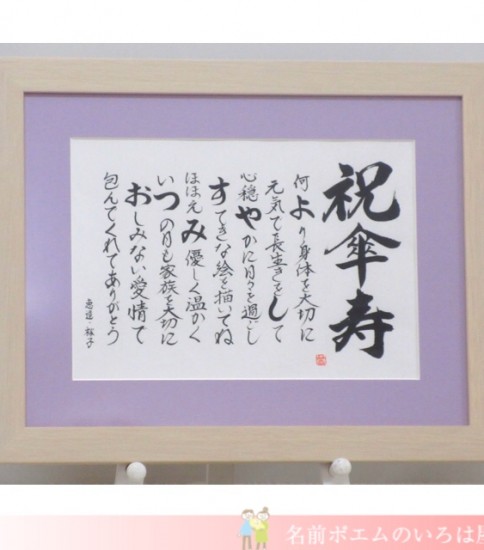 祝傘寿
何より身体を大切に
元気で長生きをして
心穏やかに日々を過ごし
すてきな絵を描いてね
ほほえみ優しく温かく
いつの日も家族を大切に
おしみない愛情で
包んでくれてありがとう
名前ポエムのいろは